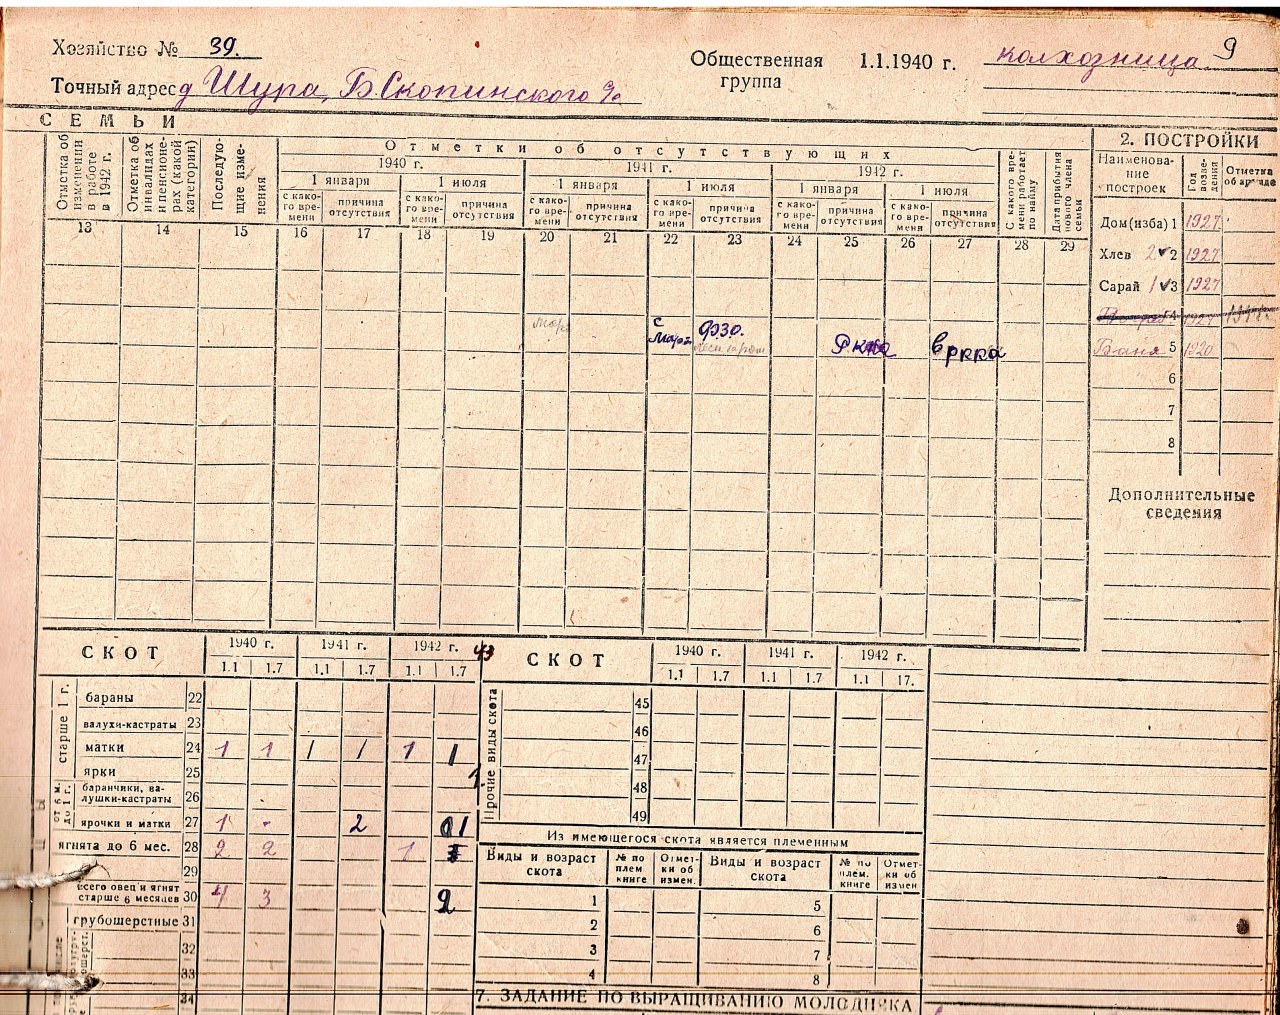 Хозяйство № 39.
Общественная группа 1.1.1940 г. колхозница 9
Точный адрес д Шура, Б Скопинского
СЕМЬИ
Отметка об изменении в работе в 1942 г.
Отметка об инвалидах и пенсионерах (какой категории)
Последующие изменения
Отметки об отсутствующих
1940 г. 1941 г. 1942 г.
1 января 1 июля 1 января 1 июля 1 января 1 июля
с какого времени причина отсутствия с какого времени причина отсутствия с какого времени причина отсутствия с какого времени причина отсутствия с какого времени причина отсутствия с какого времени причина отсутствия
С какого времени работает по найму
Дата прибытия нового члена семьи
13 14 15 16 17 18 19 20 21 22 23 24 25 26 27 28 29
с март ФЗО. РККА в РККА
2. ПОСТРОЙКИ
Наименование построек Год возведения Отметка об
Дом (изба) 1 1927
Хлев 2 2 1927
Сарай 1 3 1927
4
Баня 5 1920
6
7
8
Дополнительные сведения
СКОТ 1940 г. 1941 г. 1942 г.
1.1 1.7 1.1 1.7 1.1 1.7
43
старше 1 г.
бараны 22
валухи-кастраты 23
матки 24 1 1 1 1 1 1
ярки 25
от 6 м. до 1 г.
баранчики, валушки-кастраты 26
ярочки и матки 27 1 - 2 1
ягнята до 6 мес. 28 2 2 1
29
всего овец и ягнят старше 6 месяцев 30 4 3 2
грубошерстные 31
32
33
34
СКОТ 1940 г. 1941 г. 1942 г.
1.1 1.7 1.1 1.7 1.1 17.
Прочие виды скота
45
46
47
48
49
Из имеющегося скота является племенным
Виды и возраст скота № по плем книге Отметки об измен. Виды и возраст скота № по плем. книге Отметки об измен
1 5
2 6
3 7
4 8
7. ЗАДАНИЕ ПО ВЫРАЩИВАНИЮ МОЛОДНЯКА